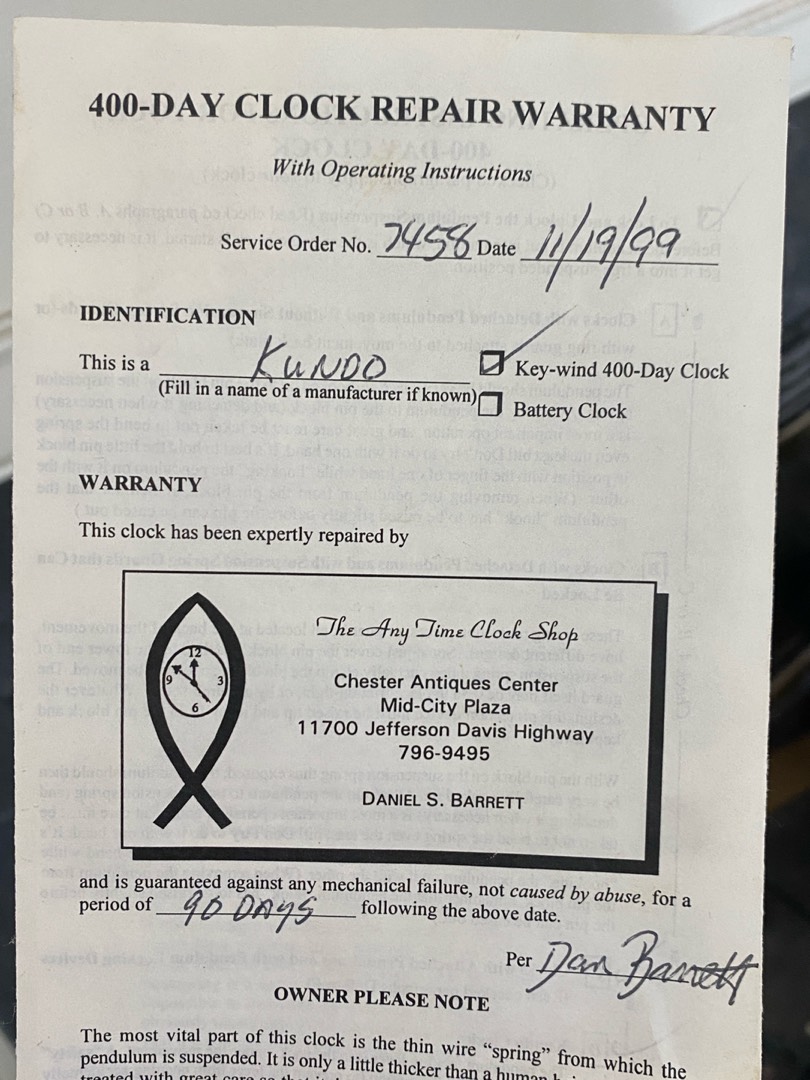 400-DAY CLOCK REPAIR WARRANTY
With Operating Instructions
Service Order No. 7458 Date 11/19/99
IDENTIFICATION
This is a KUNDO Key-wind 400-Day Clock
(Fill in a name of a manufacturer if known) Battery Clock
WARRANTY
This clock has been expertly repaired by
The Any Time Clock Shop
12
9 3
6
Chester Antiques Center
Mid-City Plaza
11700 Jefferson Davis Highway
796-9495
DANIEL S. BARRETT
and is guaranteed against any mechanical failure, not caused by abuse, for a
period of 90 DAYS following the above date.
Per Dan Barrett
OWNER PLEASE NOTE
The most vital part of this clock is the thin wire “spring” from which the
pendulum is suspended. It is only a little thicker than a human
treated with great care so that it